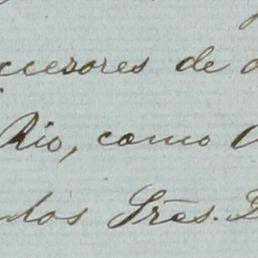 ccesores de
Rio, como
dos Srãs.